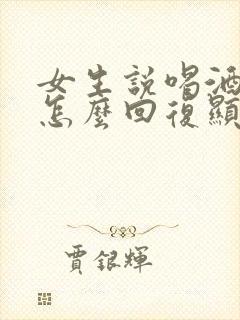 女生説喝酒
怎麼回復顯
賈銀輝